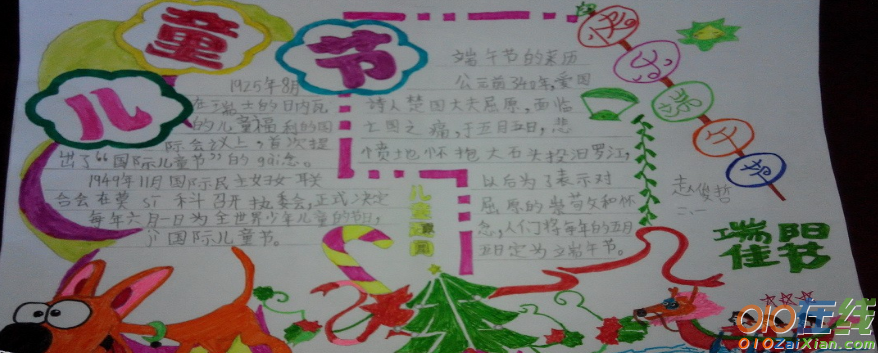 儿童节
1925年8月
在瑞士的日内瓦
的儿童福利的国
际会议上,首次提
出了“国际儿童节”的gài念。
1949年11月国际民主妇女联
合会在莫sī科召开执委会,正式决定
每年六月一日为全世界少年儿童的节日,
国际儿童节。
端午节的来历
公元前340年,爱国
诗人楚国大夫屈原,面临
亡国之痛,于五月五日,悲
愤地怀抱大石头投汨罗江,
以后为了表示对
屈原的崇敬和怀
念,人们将每年的五月
五日定为端午节。
儿童
赵俊哲
二.一
端阳
佳节
010在线
010ZaiXian.com